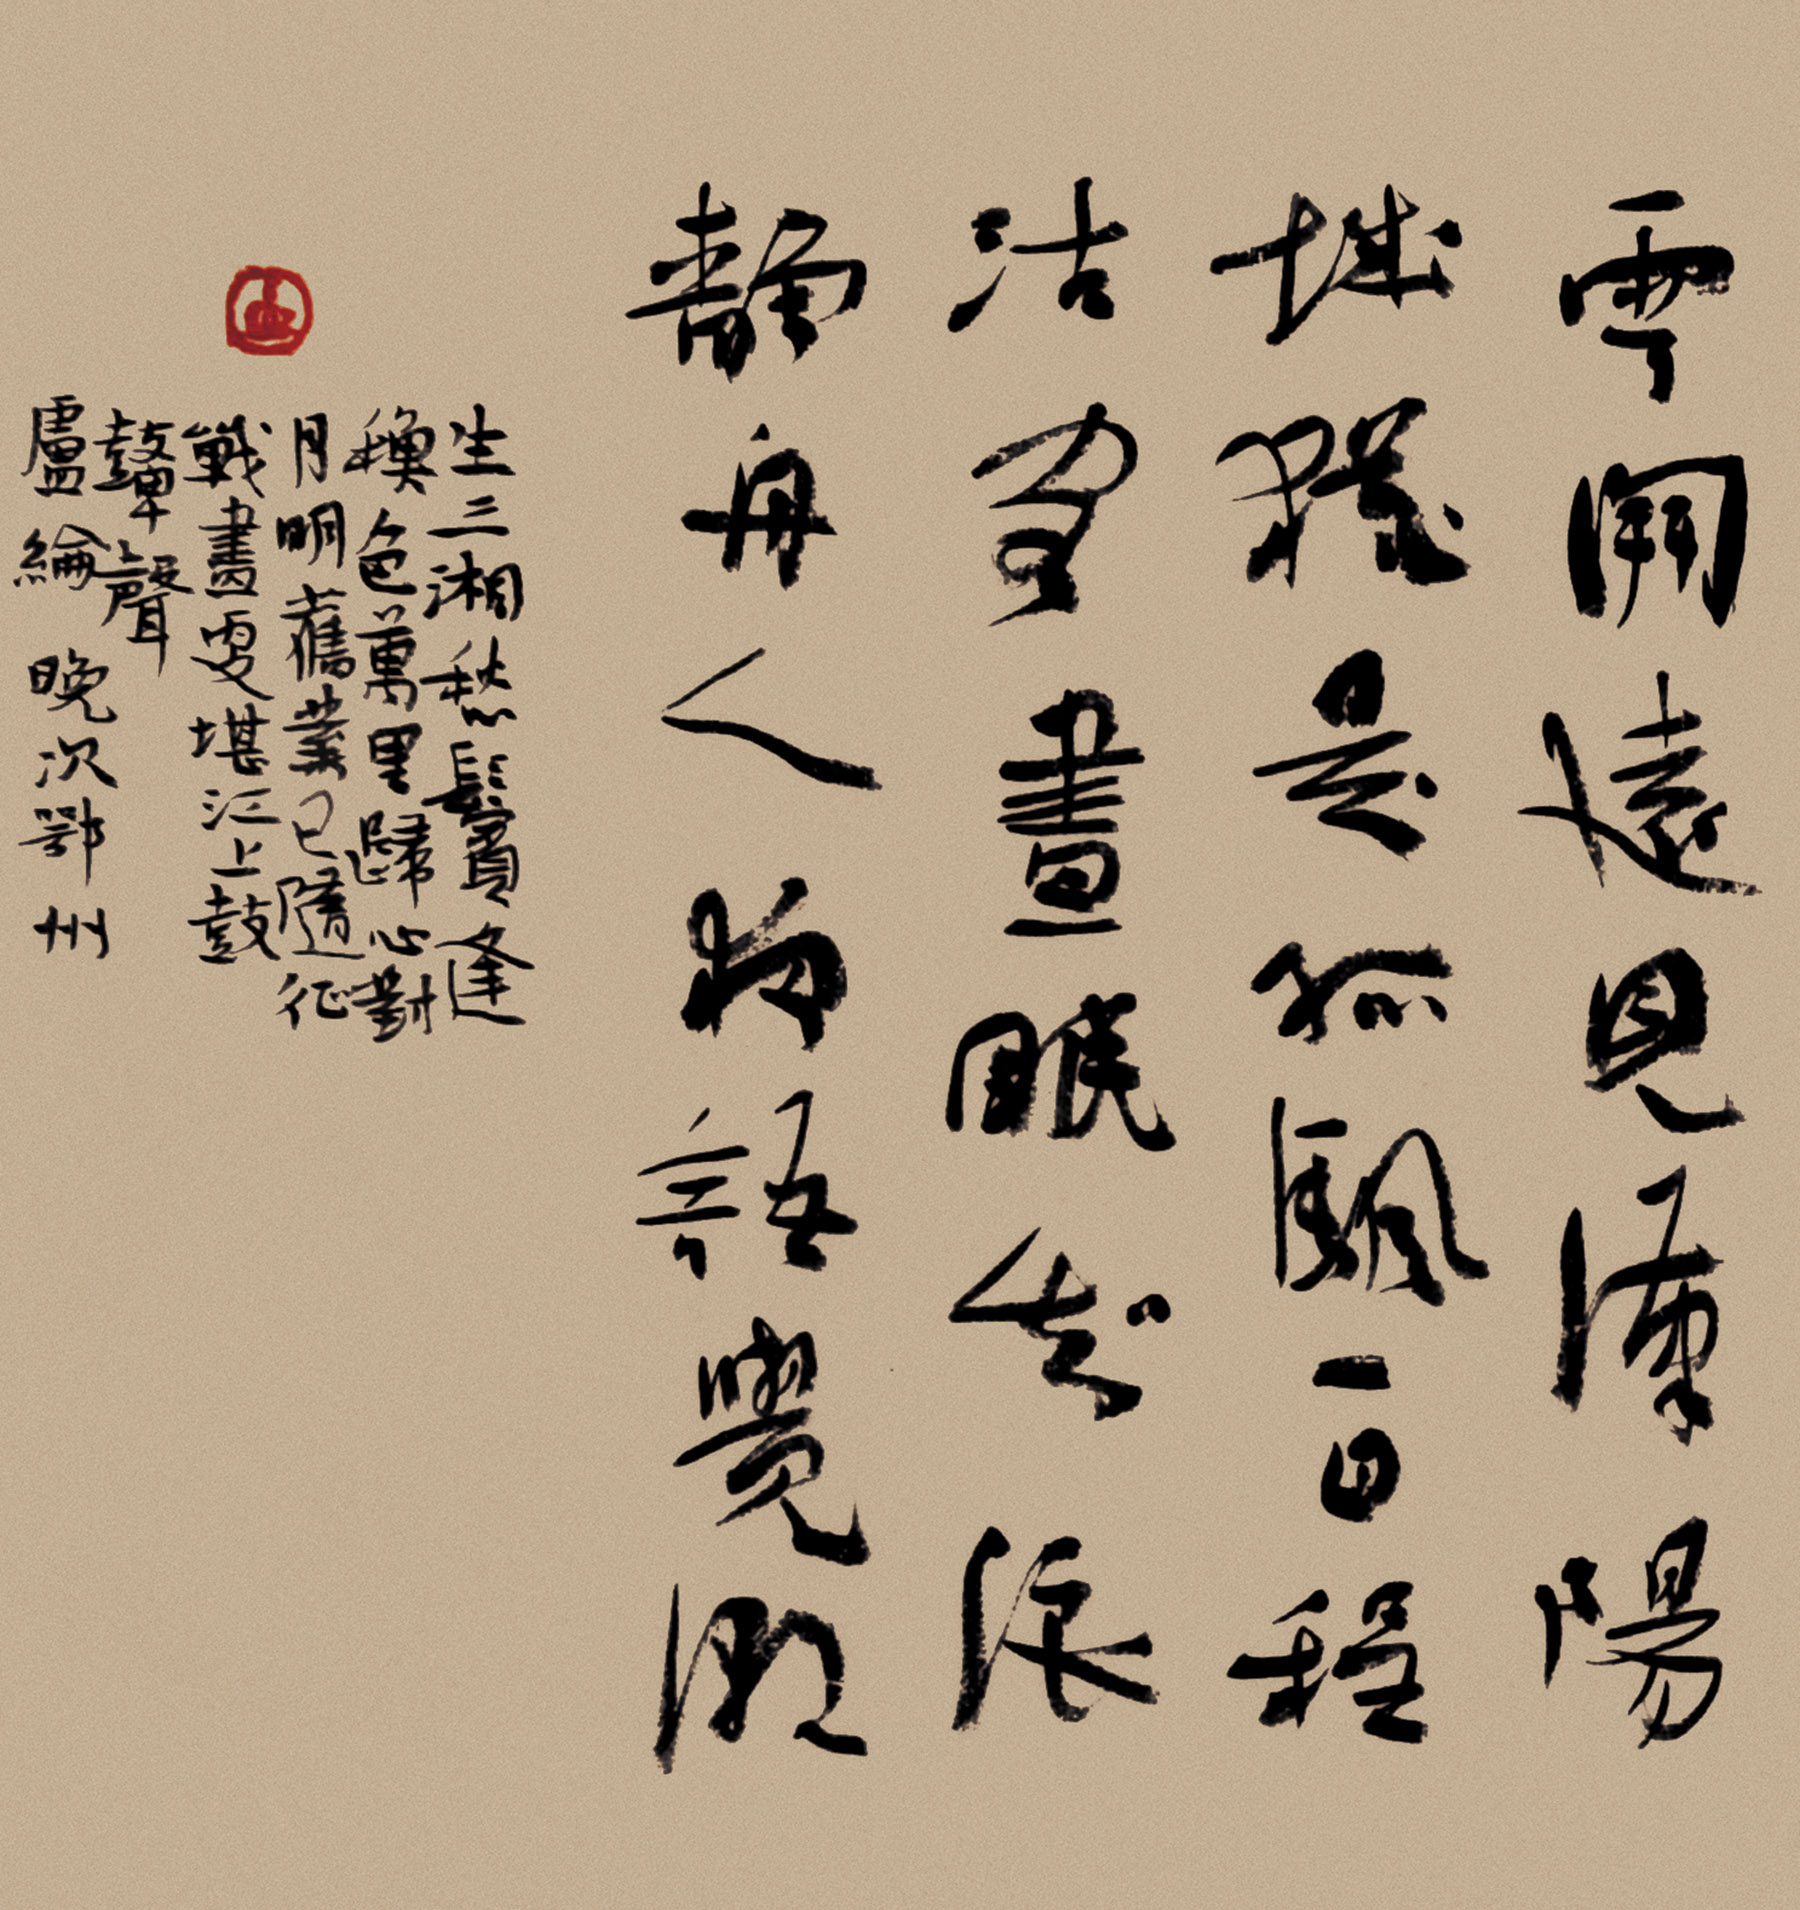 雲開遠見漢陽
城猶是孤颿一日程
沽客晝眠知浪
靜舟人夜語覺潮
生三湘愁鬢逢
穐色萬里歸心對
月明舊業已隨征
戰盡更堪江上鼓
鼙聲
盧綸 晚次鄂州